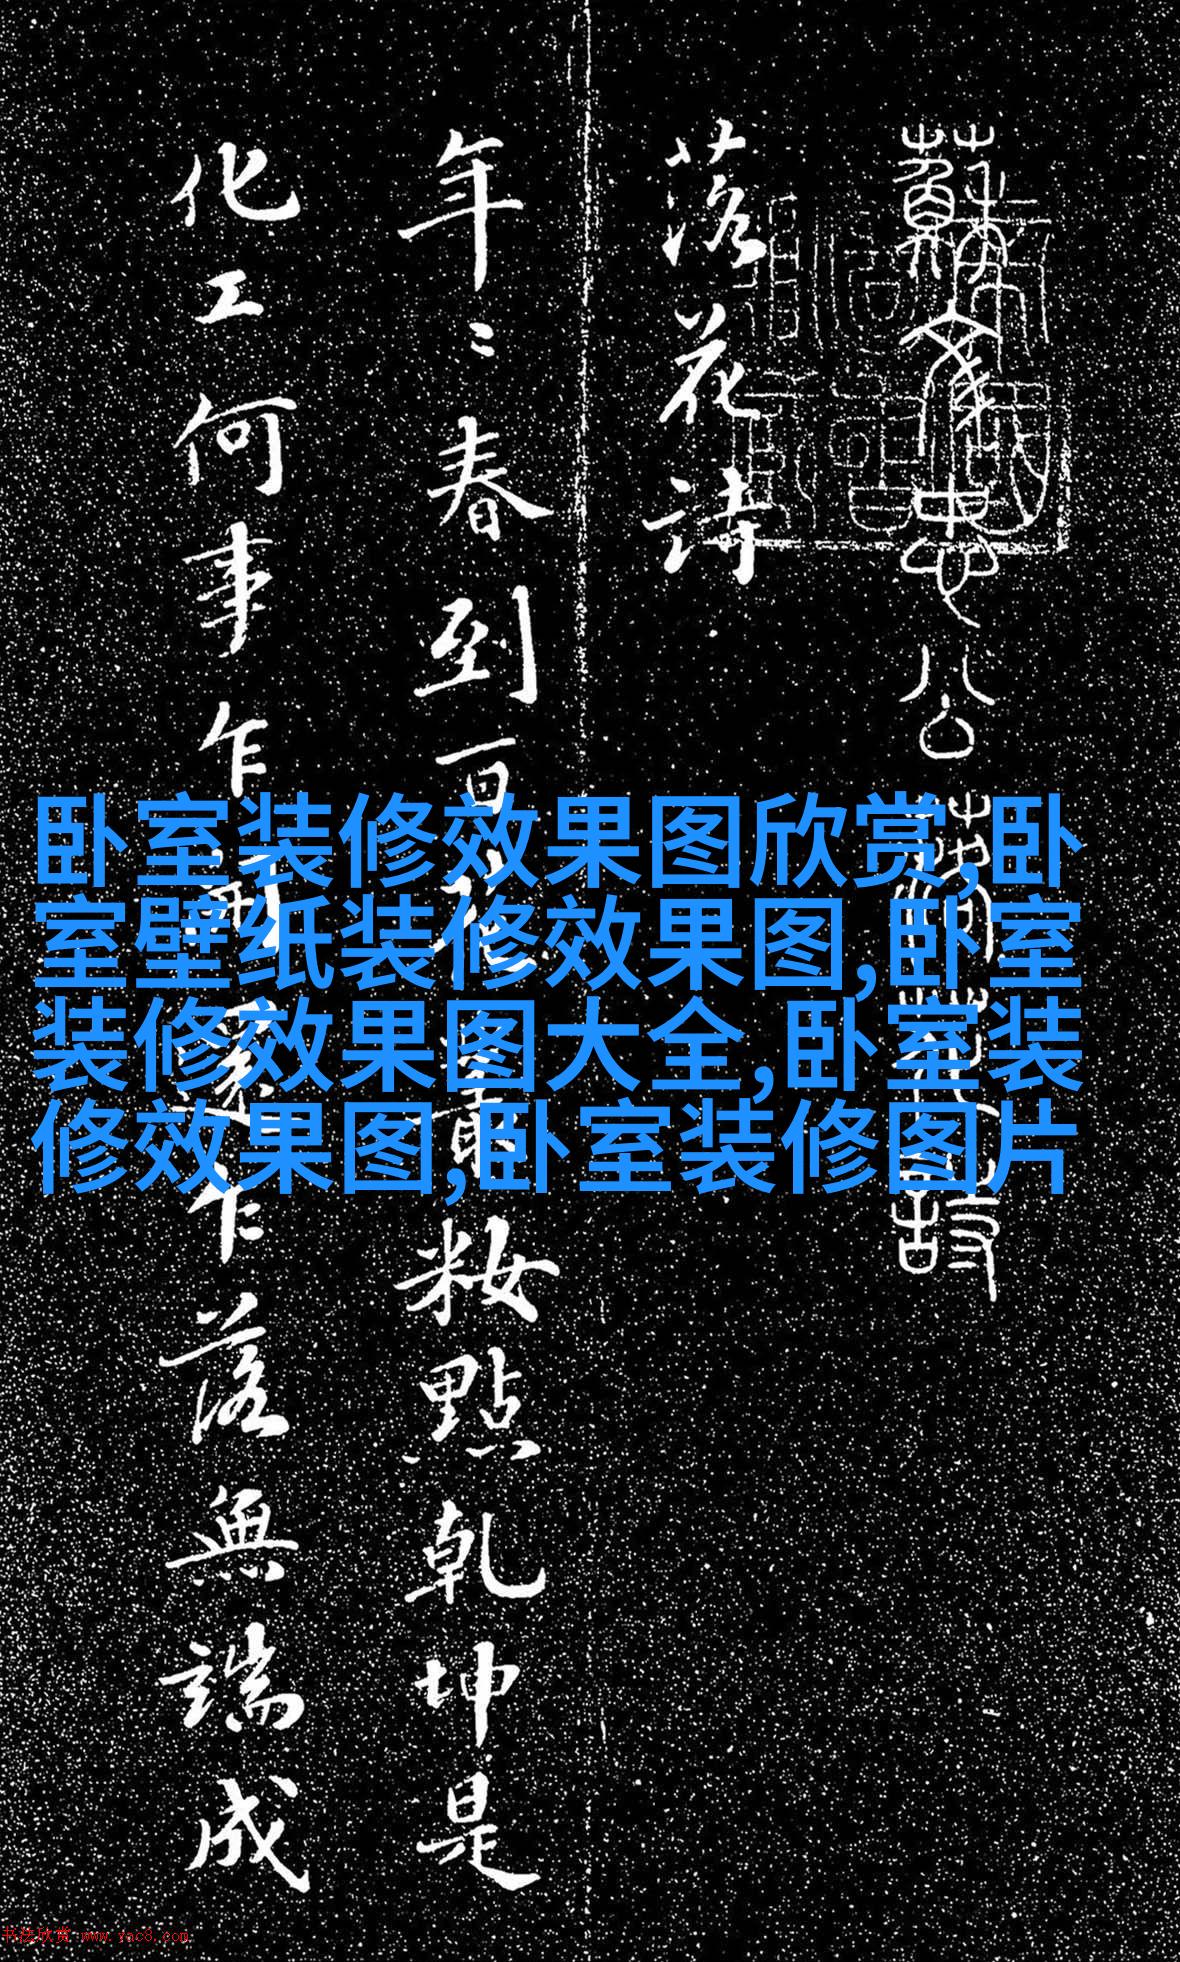 蘇文忠公
落花詩
年〻春到百花籹點乾坤是
化工何事乍開還乍落無端成
卧室装修效果图欣赏,卧
室壁纸装修效果图,卧室
装修效果图大全,卧室装
修效果图,卧室装修图片
书法欣赏 www.yac8.com